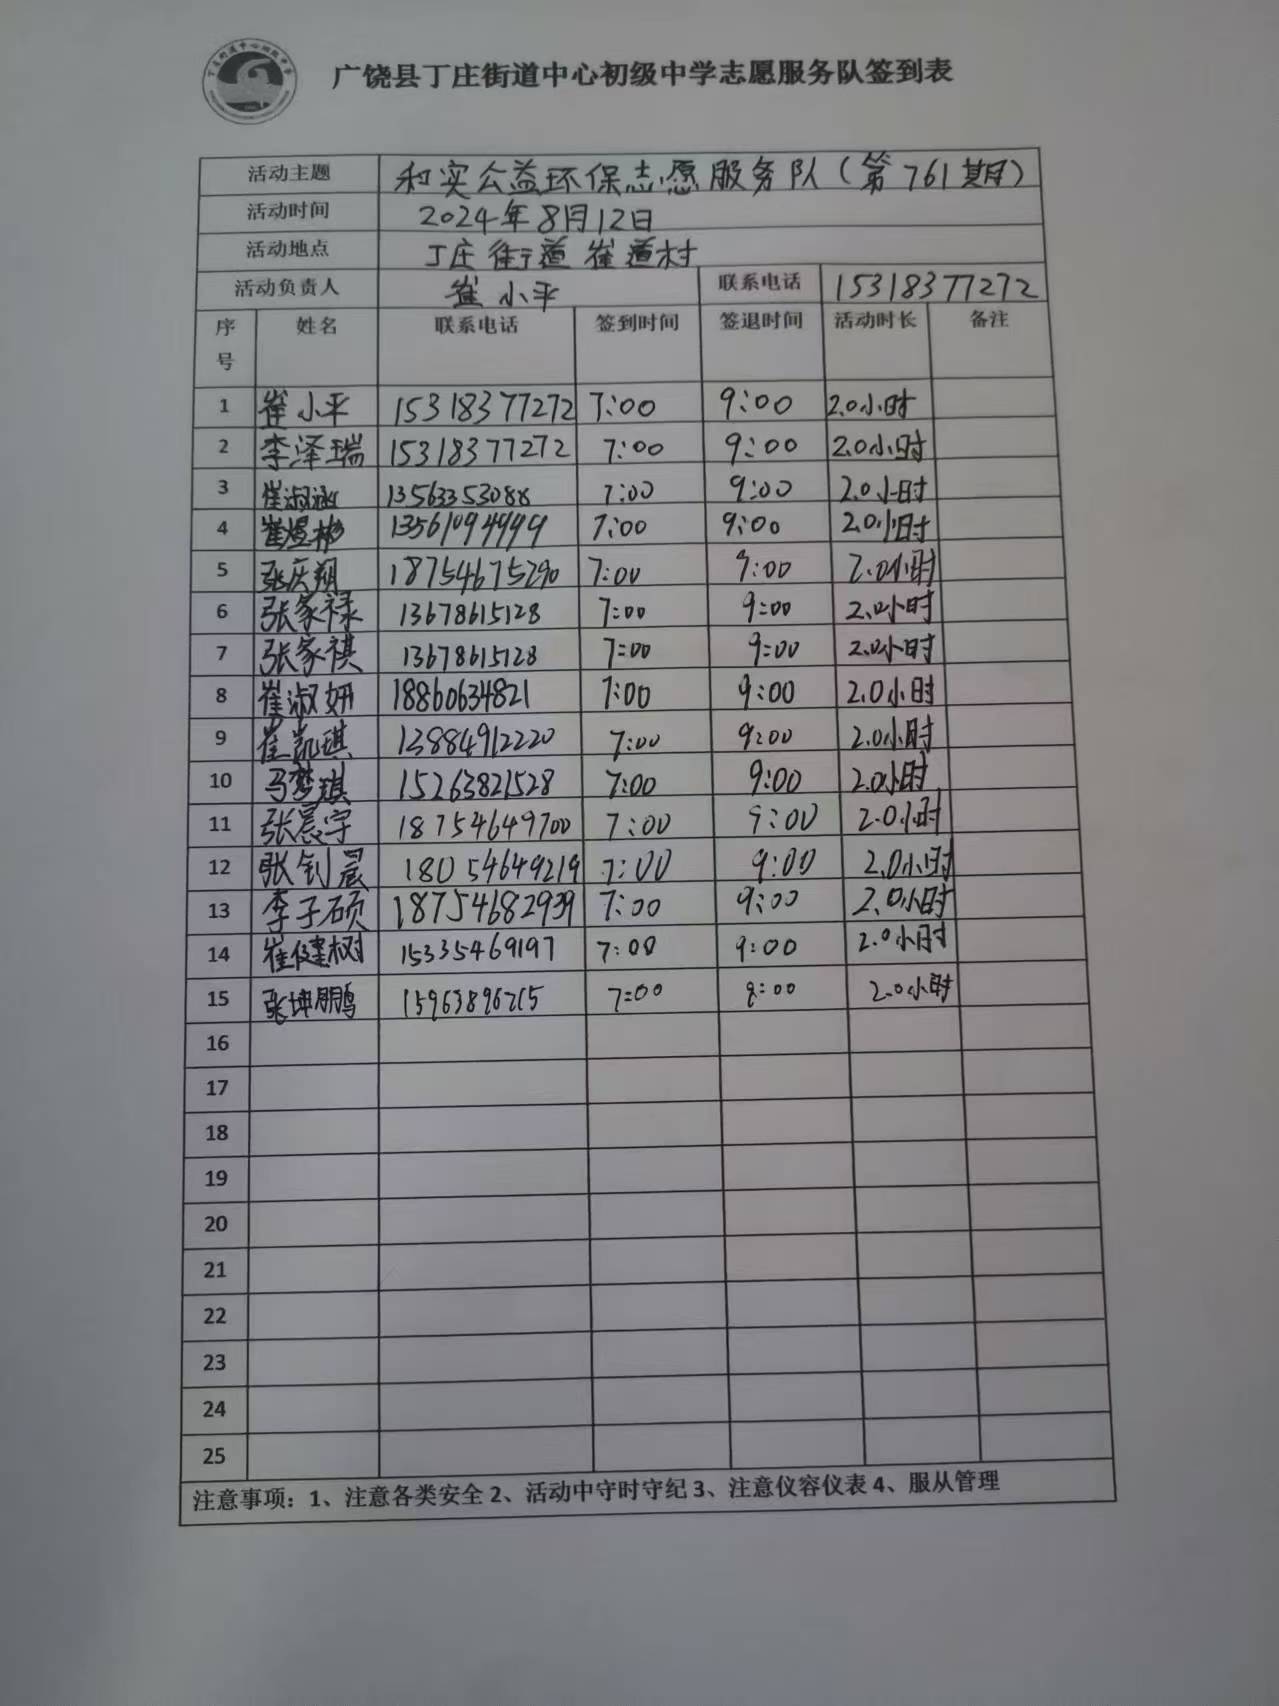 广饶县丁庄街道中心初级中学志愿服务队签到表
活动主题 和实公益环保志愿服务队（第761期）
活动时间 2024年8月12日
活动地点 丁庄街道崔道村
活动负责人 崔小平 联系电话 15318377272
序号 姓名 联系电话 签到时间 签退时间 活动时长 备注
1 崔小平 15318377272 7:00 9:00 2.0小时
2 李泽瑞 15318377272 7:00 9:00 2.0小时
3 崔淑涵 13563353088 7:00 9:00 2.0小时
4 崔煜彬 13561094949 7:00 9:00 2.0小时
5 张庆翔 18754675290 7:00 9:00 2.0小时
6 张家禄 13678615128 7:00 9:00 2.0小时
7 张家祺 13678615128 7:00 9:00 2.0小时
8 崔淑妍 18860634821 7:00 9:00 2.0小时
9 崔凯琪 13884912220 7:00 9:00 2.0小时
10 马梦琪 15263821528 7:00 9:00 2.0小时
11 张晨宇 18754649700 7:00 9:00 2.0小时
12 张钊晨 18054649219 7:00 9:00 2.0小时
13 李子硕 18754682939 7:00 9:00 2.0小时
14 崔健树 15335469197 7:00 9:00 2.0小时
15 张坤鹏 15963896215 7:00 9:00 2.0小时
16
17
18
19
20
21
22
23
24
25
注意事项：1、注意各类安全 2、活动中守时守纪 3、注意仪容仪表 4、服从管理